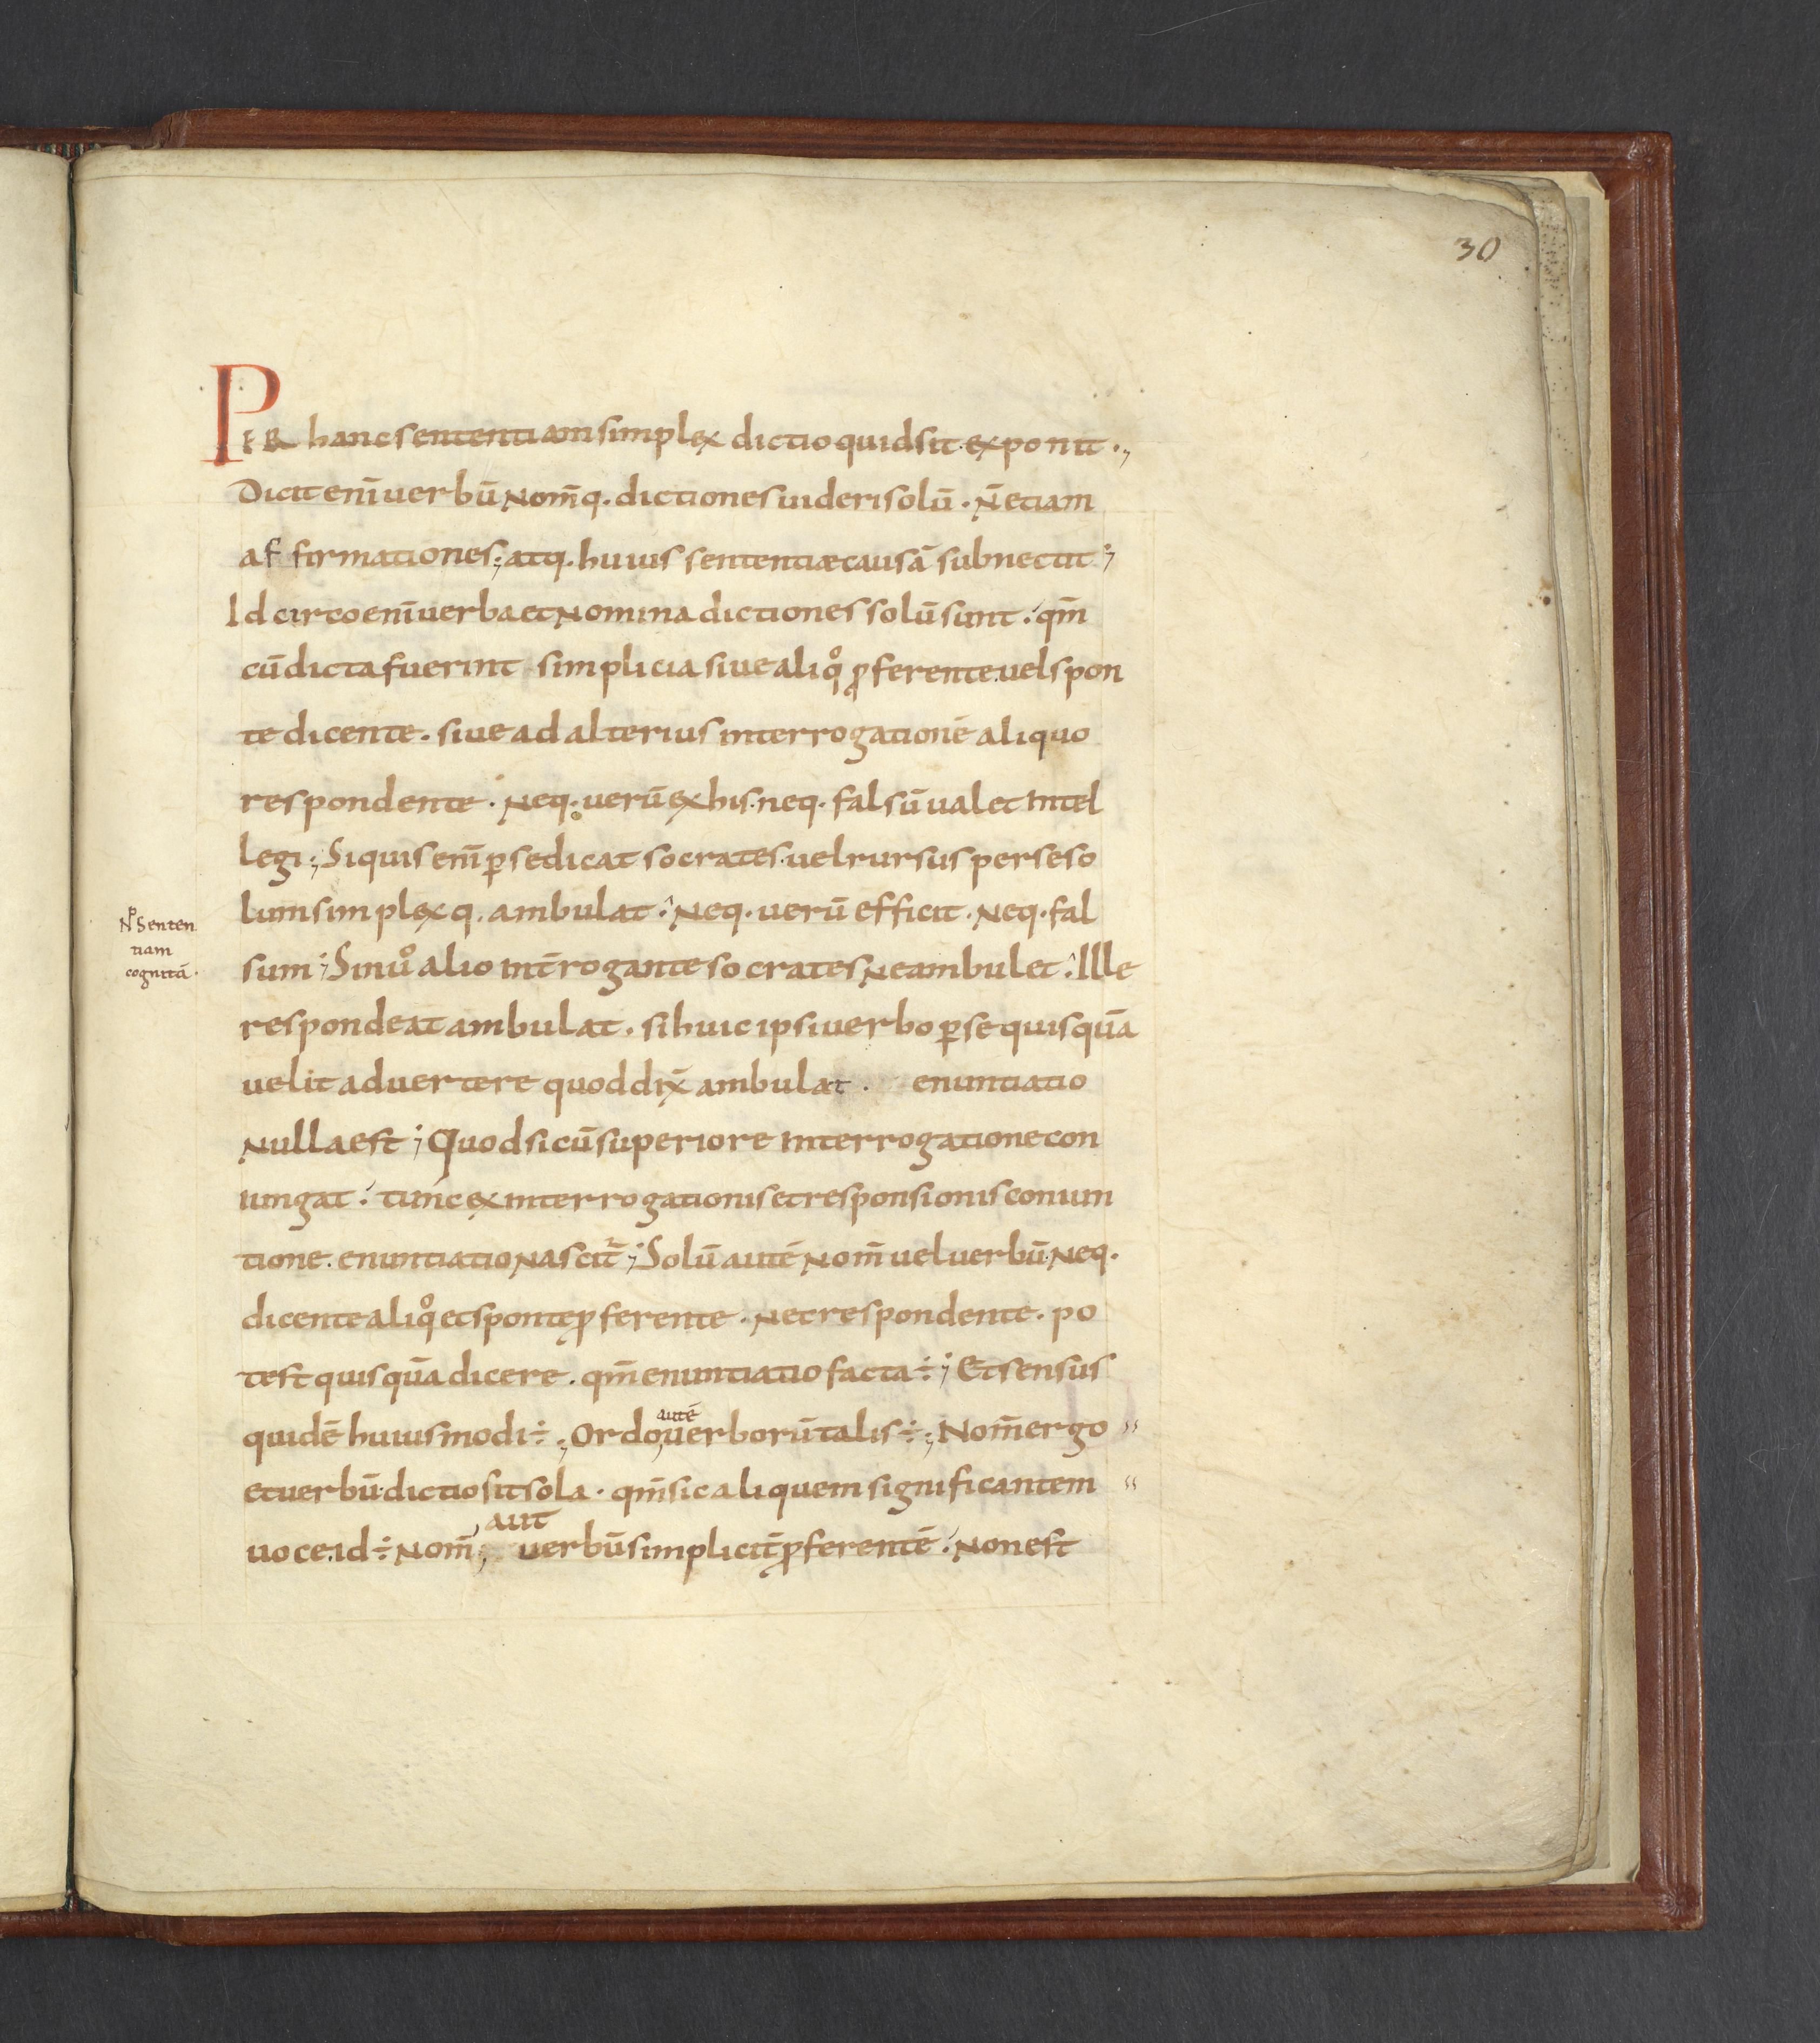 30
PER hanc sententiam simplex dictio quid sit exponit.,
Dicit enī uerbū Nom̄q. dictiones uideri solū. N̄ etiam
affirmationes; atq. huius sententiæ causā subnectit;
Idcirco enī uerba et Nomina dictiones solū sunt. qm̄
cū dicta fuerint simplicia siue aliqͦ ꝓferente. uel spon
te dicente. siue ad alterius interrogationē aliquo
respondente. Neq. uerū ex his. neq. falsū ualet Intel
legi; Si quis eni̅ ꝑ se dicat socrates. uel rursus per se so
lum simplex q. ambulat. Neq. uerū efficit. Neq. fal
N̊ Senten
tiam
cognitā.
sum; Sin uͦ alio Int̄rogante socrates Ne ambulet. Ille
respondeat ambulat. si huic ipsi uerbo ꝑ se quisquā
uelit aduertere quod dix̄ ambulat. enuntiatio
Nulla est; Quod si cū superiore Interrogatione con
iungat. tunc ex interrogationis et responsionis coniun
tione. enuntiatio Nascit̄; Solū autē Nom̄ uel uerbū. Neq.
dicente aliqͦ et sponte ꝓferente. Nec respondente. po
test quisquā dicere. qm̄ enuntiatio facta ÷; Et sensus
quidē huiusmodi ÷; Ordo autē uerborū talis ÷; Nom̄ ergo
et uerbū. dictio sit sola. qm̄ sic aliquem significantem
uoce. id ÷ Nom̄, aut uerbū simplicit̄ ꝓferentē. Non est